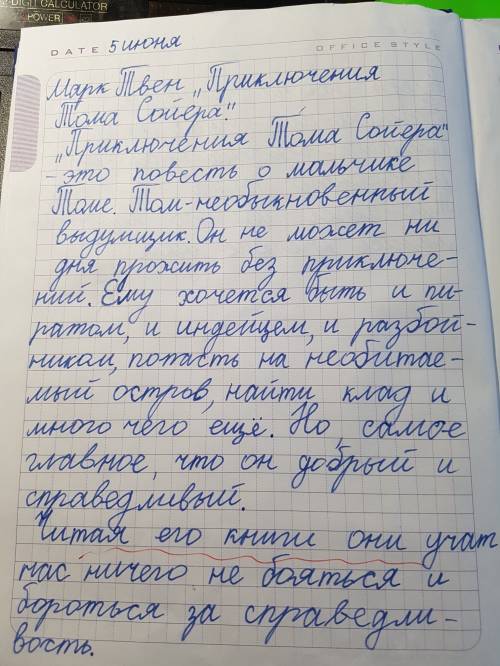 DIGIT CALCULATOR
POWER
DATE 5 июня OFFICE STYLE
Марк Твен „Приключения
Тома Сойера."
„Приключения Тома Сойера"
- это повесть о мальчике
Томе. Том-необыкновенный
выдумщик. Он не может ни
дня прожить без приключе-
ний. Ему хочется быть и пи-
ратом, и индейцем, и разбой-
ником, попасть на необитае-
мый остров, найти клад и
много чего ещё. Но, самое
главное, что он добрый и
справедливый.
Читая его книги они учат
нас ничего не бояться и
бороться за справедли-
вость.